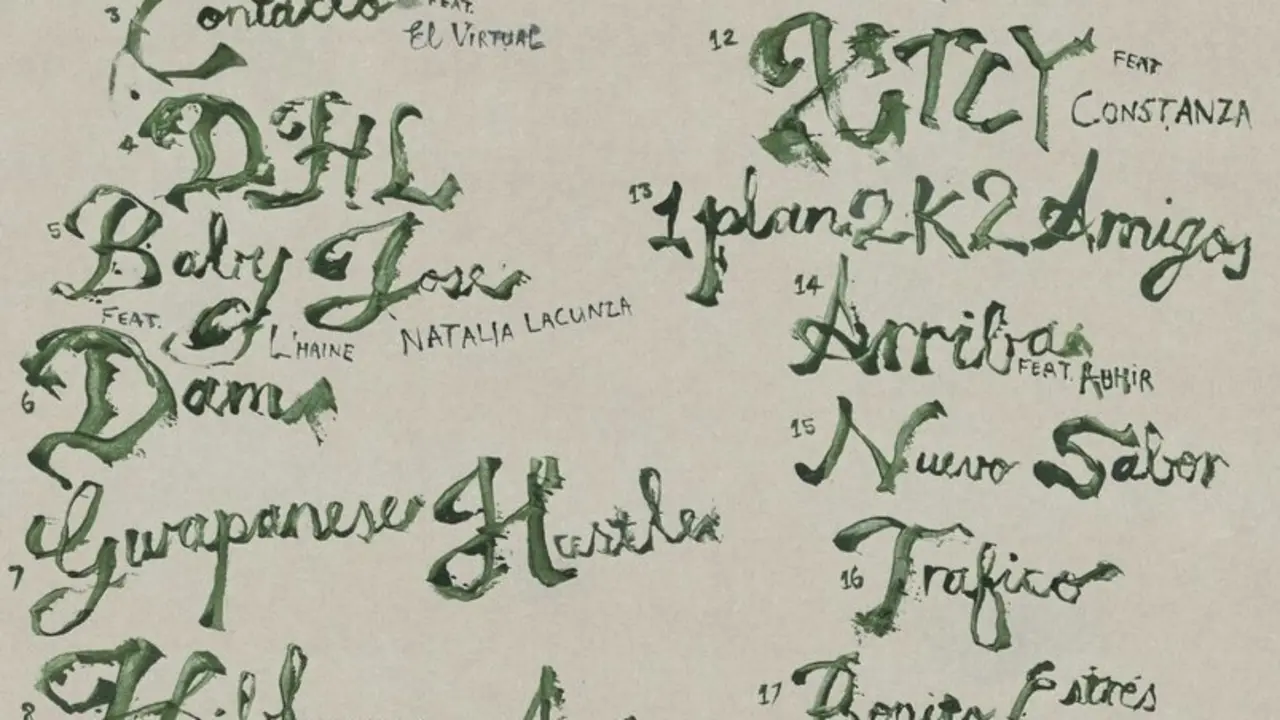 3 Contacto FEAT.
El VIRTUAL
4 DHL
5 Baby Jose
FEAT. L'HAINE NATALIA LACUNZA
6 Dam
7 Gwapanese Hustle
8
12 XTCY FEAT
CONSTANZA
13 1plan2K2Amigos
14 Arriba
FEAT. ABHIR
15 Nuevo Sabor
16 Trafico
17 Bonito Estrés